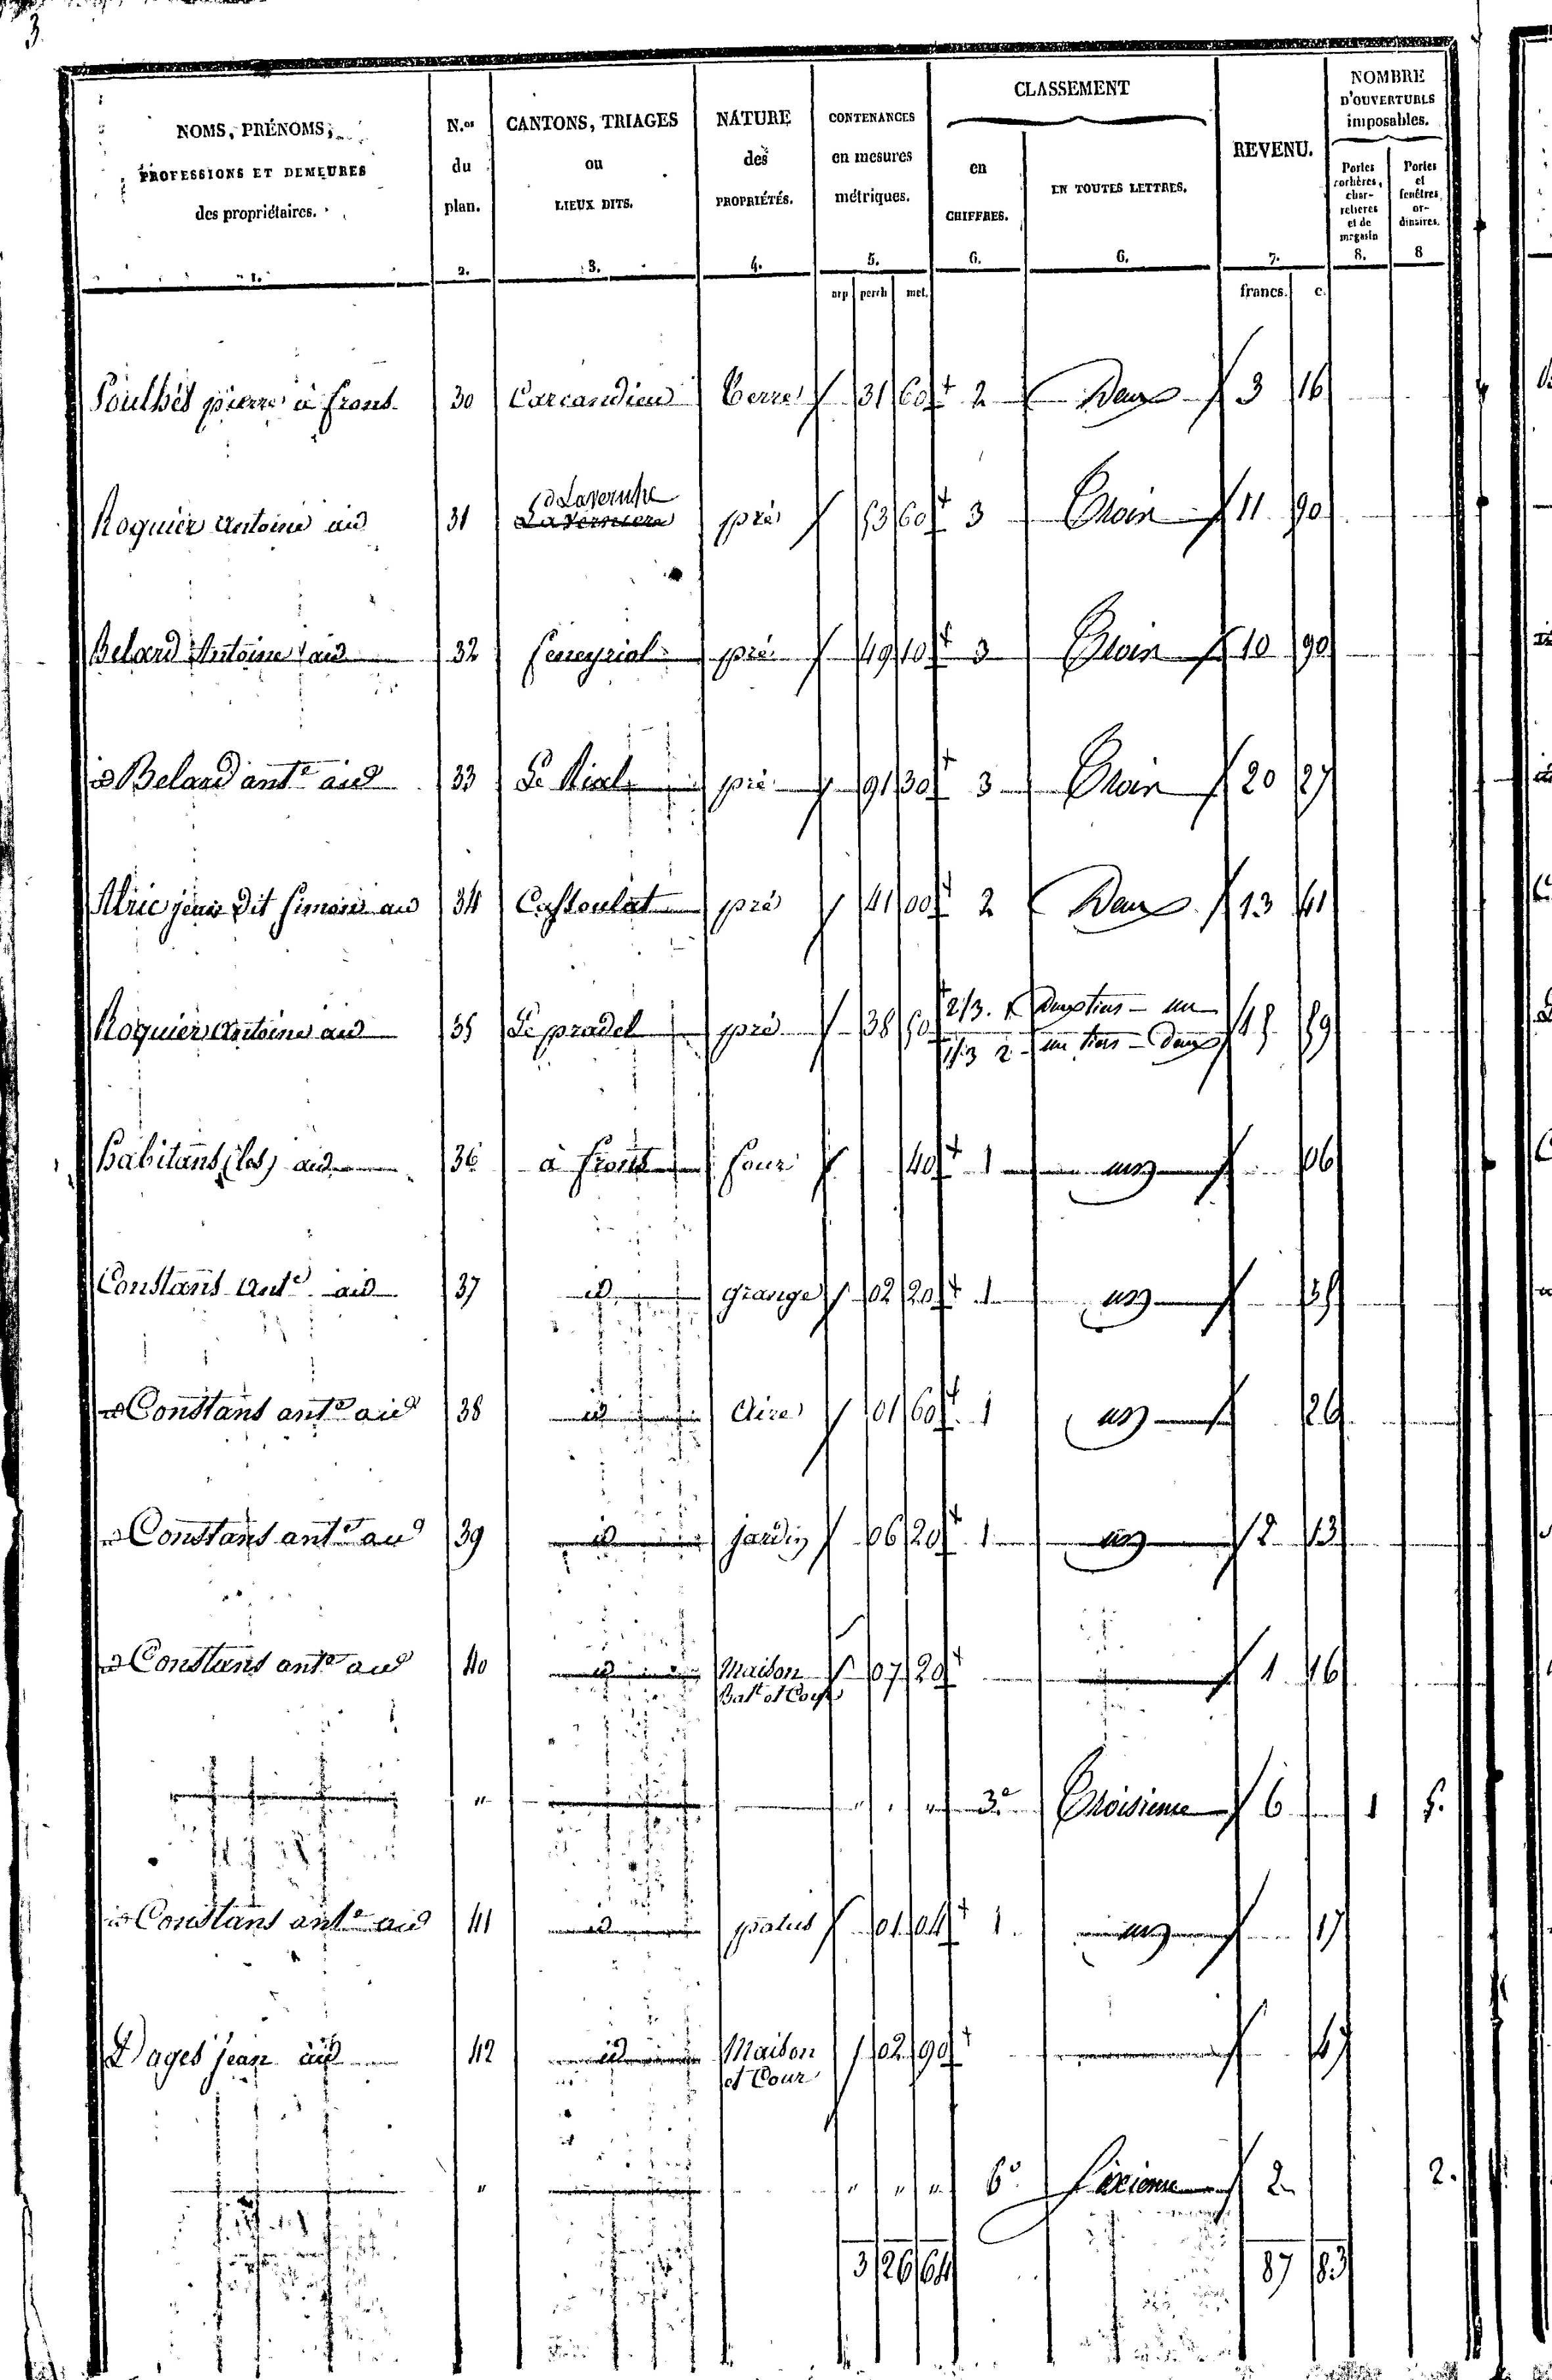 3.
NOMS, PRÉNOMS,
PROFESSIONS ET DEMEURES
des propriétaires.
1.
N.os
du
plan.
2.
CANTONS, TRIAGES
ou
LIEUX DITS.
3.
NATURE
des
PROPRIÉTÉS.
4.
CONTENANCES
en mesures
métriques.
5.
arp perch met.
CLASSEMENT
en
CHIFFRES.
6.
EN TOUTES LETTRES.
6.
REVENU.
7.
francs. c.
NOMBRE
D'OUVERTURES
imposables.
Portes
cochères,
char-
retières
et de
magasin
8.
Portes
et
fenêtres
or-
dinaires.
8
Poulhés pierre à frons 30 Carcandieu Terre 31 60 2 Deux 3 16
Roquier Antoine aud 31 Laverniere pré 53 60 3 Trois 11 90
Belard Antoine aud 32 feneyrial pré 49 10 3 Trois 10 90
id Belard ant.e aud 33 Le Rial pré 91 30 3 Trois 20 27
Alric jean dit Simon aud 34 Castoulat pré 41 00 2 Deux 13 41
Roquier Antoine aud 35 Le pradel pré 38 50 2/3. 1 deux tiers - un 15 59
1/3 2 un tiers - deux
habitans (les) aud 36 à frons four 40 1 un 06
Constans Ant.e aud 37 id grange 02 20 1 un 35
id Constans ant.e aud 38 id Aire 01 60 1 un 26
id Constans ant.e aud 39 id jardin 06 20 1 un 2 13
id Constans ant.e aud 40 id Maison 07 20 1 16
Bat.t et Cour
" " " " 3.e Troisieme 6 1 5.
id Constans ant.e aud 41 id patus 01 04 1. un 17
Dages jean aud 42 id Maison 02 90 47
et Cour
" " " " 6.e Sixieme 2 2.
3 26 64 87 83